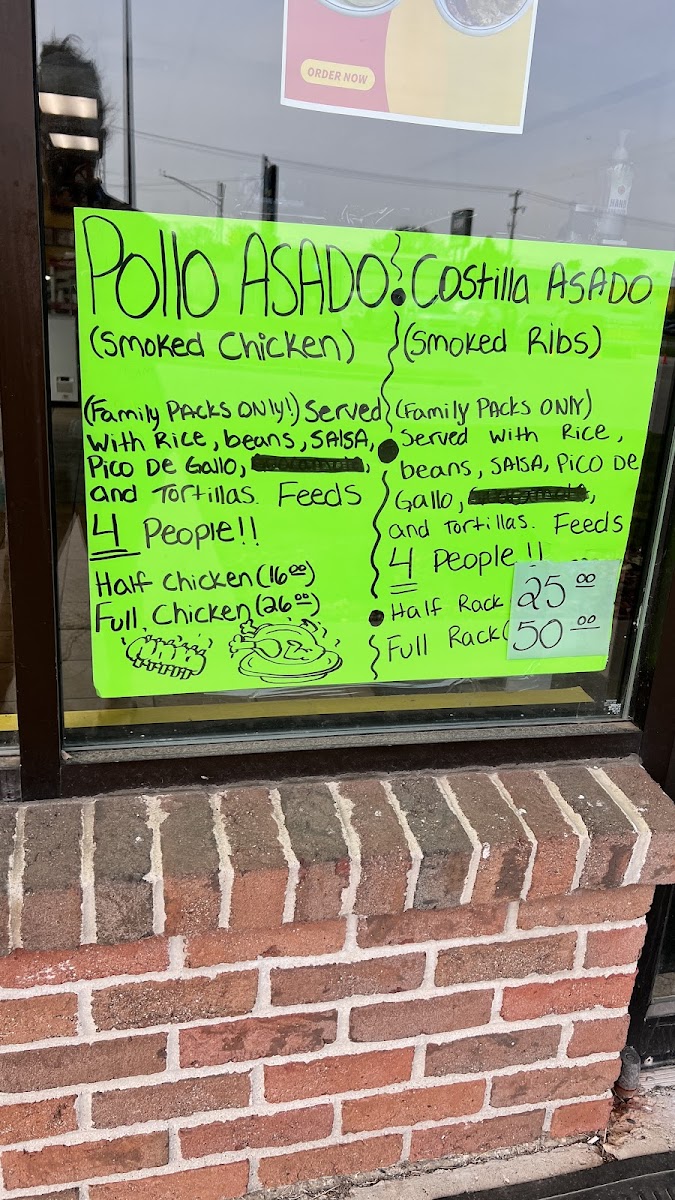 ORDER NOW
Pollo ASADO
(Smoked Chicken)
(Family PACKS ONLY!) Served
With Rice, beans, SALSA,
Pico De Gallo, ,
and Tortillas. Feeds
4 People!!
Half Chicken (16.00)
Full Chicken (26.00)
Costilla ASADO
(Smoked Ribs)
(Family PACKS ONLY)
Served with Rice,
beans, SALSA, Pico De
Gallo, ,
and Tortillas. Feeds
4 People!!
Half Rack 25 00
Full Rack( 50 00